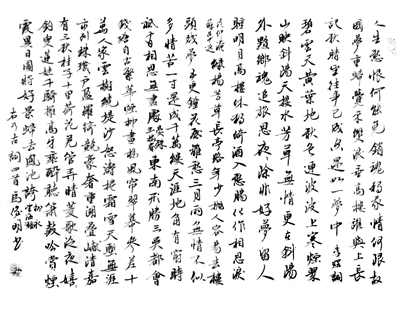 人生愁恨何能免销魂独我情何限故
國夢重歸覺來雙淚垂高樓誰與上長
記秋晴望往事已成空還如一夢中 李煜詞
碧雲天黄葉地秋色連波波上寒煙翠
山映斜陽天接水芳草無情更在斜陽
外黯鄉魂追旅思夜夜除非好夢留人
睡明月高樓休独倚酒入愁腸化作相思淚
范仲淹
綠楊芳草長亭路年少抛人容易去樓
頭殘夢五更鐘花底離愁三月雨無情不似
多情苦一寸還成千萬縷天涯地角有窮時
祗有相思無盡處 晏殊 東南形勝三吴都會
錢塘自古繁華煙柳畫橋風簾翠幕参差十
萬人家雲樹繞堤沙怒濤捲霜雪天塹無涯
市列珠璣户盈羅綺競豪奢重湖疊巘清嘉
有三秋桂子十里荷花羌管弄晴菱歌泛夜嬉
釣叟蓮娃千騎擁高牙乘醉聽簫鼓吟賞煙
霞異日圖將好景歸去鳳池誇 柳永
右乃古詞四首 馬德明書